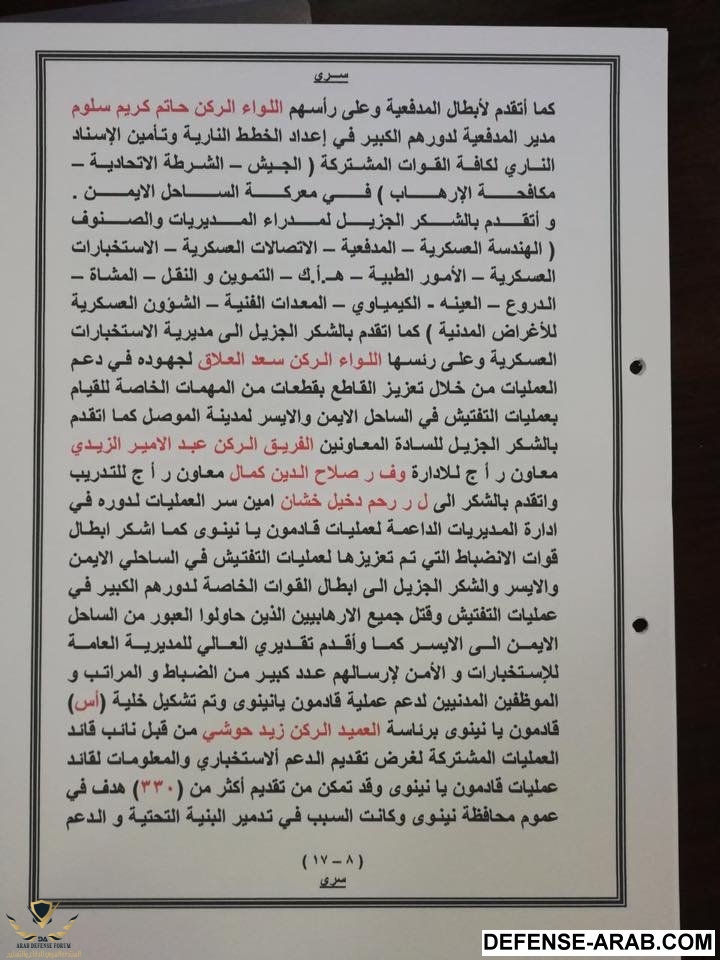 سري
كما أتقدم لأبطال المدفعية وعلى رأسهم اللواء الركن حاتم كريم سلوم
مدير المدفعية لدورهم الكبير في إعداد الخطط النارية وتأمين الإسناد
الناري لكافة القوات المشتركة ( الجيش – الشرطة الاتحادية –
مكافحة الإرهاب ) في معركة الساحل الايمن .
و أتقدم بالشكر الجزيل لمدراء المديريات والصنوف
( الهندسة العسكرية – المدفعية – الاتصالات العسكرية – الاستخبارات
العسكرية – الأمور الطبية – هـ.أ.ك – التموين و النقل – المشاة –
الدروع – العينه - الكيمياوي – المعدات الفنية – الشؤون العسكرية
للأغراض المدنية ) كما اتقدم بالشكر الجزيل الى مديرية الاستخبارات
العسكرية وعلى رئسها اللواء الركن سعد العلاق لجهوده في دعم
العمليات من خلال تعزيز القاطع بقطعات من المهمات الخاصة للقيام
بعمليات التفتيش في الساحل الايمن والايسر لمدينة الموصل كما اتقدم
بالشكر الجزيل للسادة المعاونين الفريق الركن عبد الامير الزيدي
معاون ر أ ج للادارة وف ر صلاح الدين كمال معاون ر أ ج للتدريب
واتقدم بالشكر الى ل ر رحم دخيل خشان امين سر العمليات لدوره في
ادارة المديريات الداعمة لعمليات قادمون يا نينوى كما اشكر ابطال
قوات الانضباط التي تم تعزيزها لعمليات التفتيش في الساحلي الايمن
والايسر والشكر الجزيل الى ابطال القوات الخاصة لدورهم الكبير في
عمليات التفتيش وقتل جميع الارهابيين الذين حاولوا العبور من الساحل
الايمن الى الايسر كما وأقدم تقديري العالي للمديرية العامة
للإستخبارات و الأمن لإرسالهم عدد كبير من الضباط و المراتب و
الموظفين المدنيين لدعم عملية قادمون يانينوى وتم تشكيل خلية (أس)
قادمون يا نينوى برئاسة العميد الركن زيد حوشي من قبل نائب قائد
العمليات المشتركة لغرض تقديم الدعم ألاستخباري والمعلومات لقائد
عمليات قادمون يا نينوى وقد تمكن من تقديم أكثر من (٣٣٠) هدف في
عموم محافظة نينوى وكانت السبب في تدمير البنية التحتية و الدعم
( ٨ – ١٧ )
سري
ARAB DEFENSE FORUM
DEFENSE-ARAB.COM